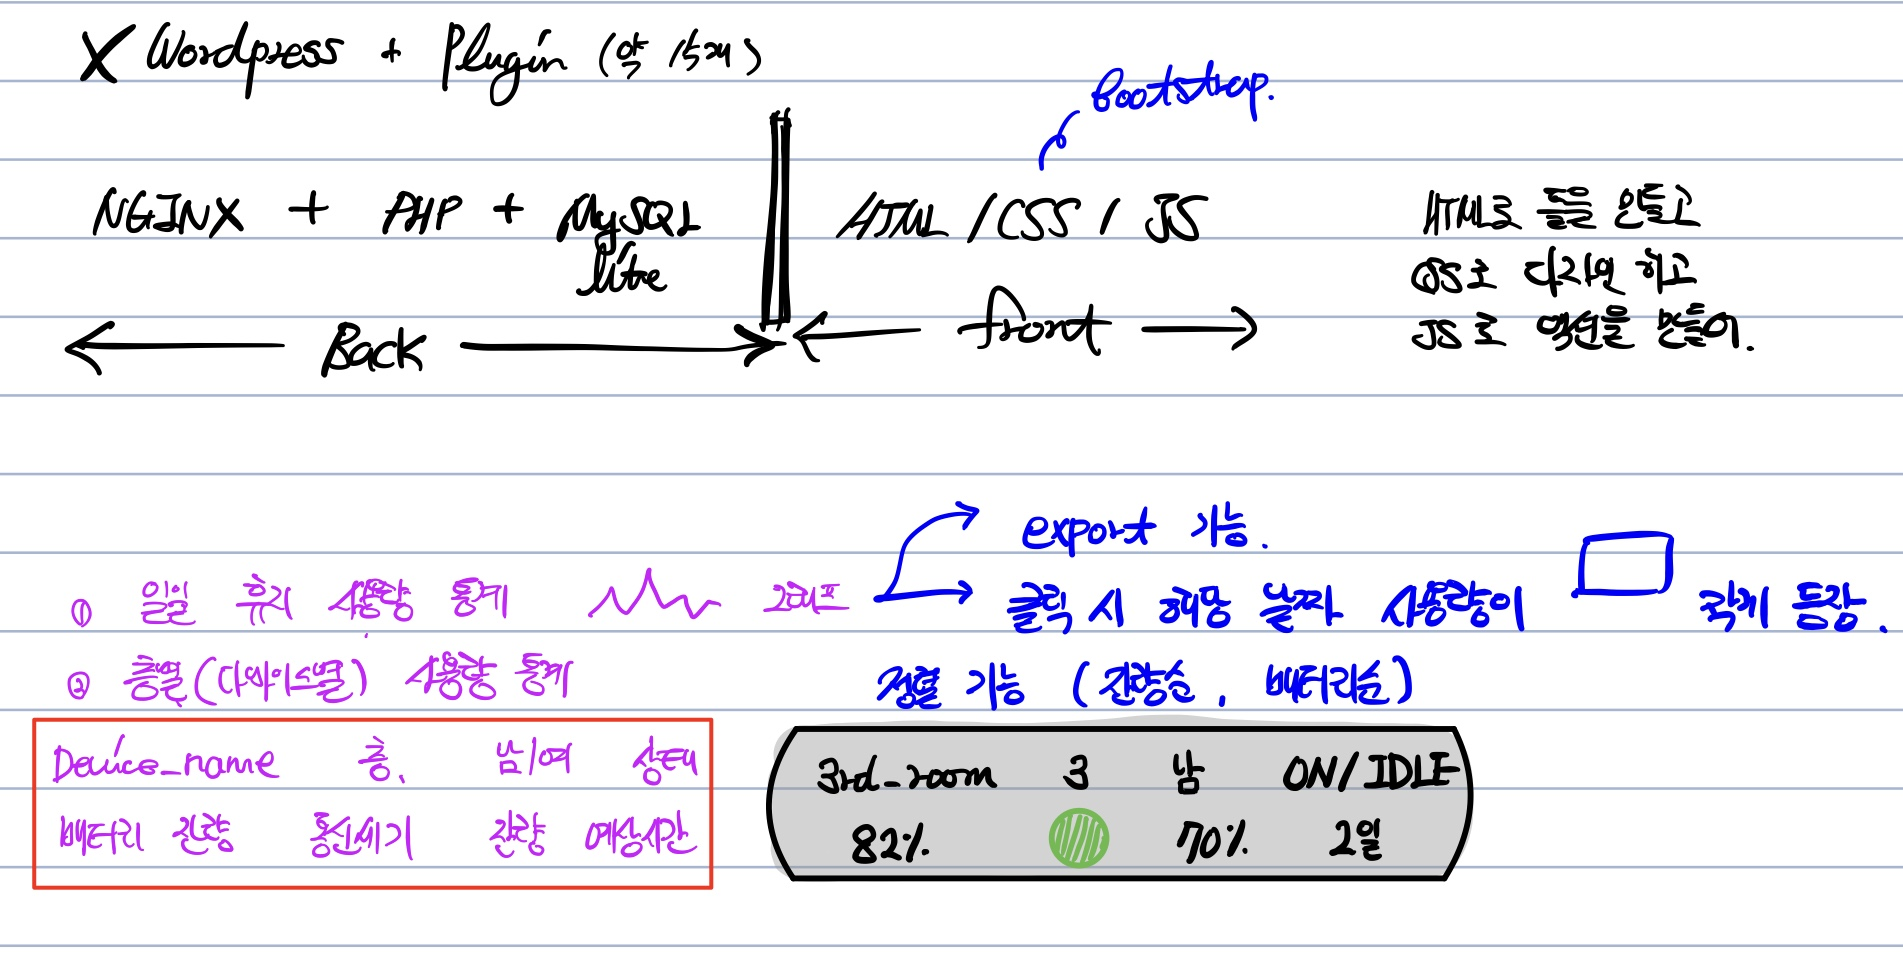 X Wordpress + Plugin (약 15개)
Bootstrap.
NGINX + PHP + MySQL lite
HTML / CSS / JS
HTML로 틀을 만들고
CSS로 디자인 하고
JS로 액션을 만들어.
Back
front
export 기능.
① 일일 휴지 사용량 통계 그래프
클릭 시 해당 날짜 사용량이 작게 등장.
② 층별(디바이스별) 사용량 통계
정렬 기능 (잔량순, 배터리순)
Device_name 층. 남/여 상태
배터리 잔량 통신세기 잔량 예상시간
3rd_room 3 남 ON/IDLE
82% 70% 2일